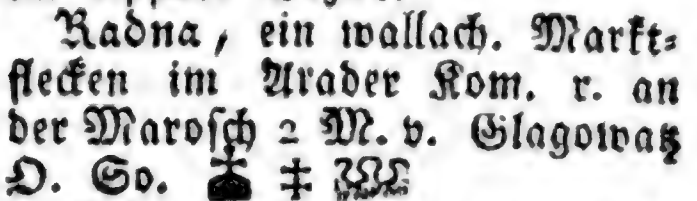 Radna, ein wallach. Markt-
flecken im Arader Kom. r. an
der Marosch 2 M. v. Glagowatz
O. So. ‡